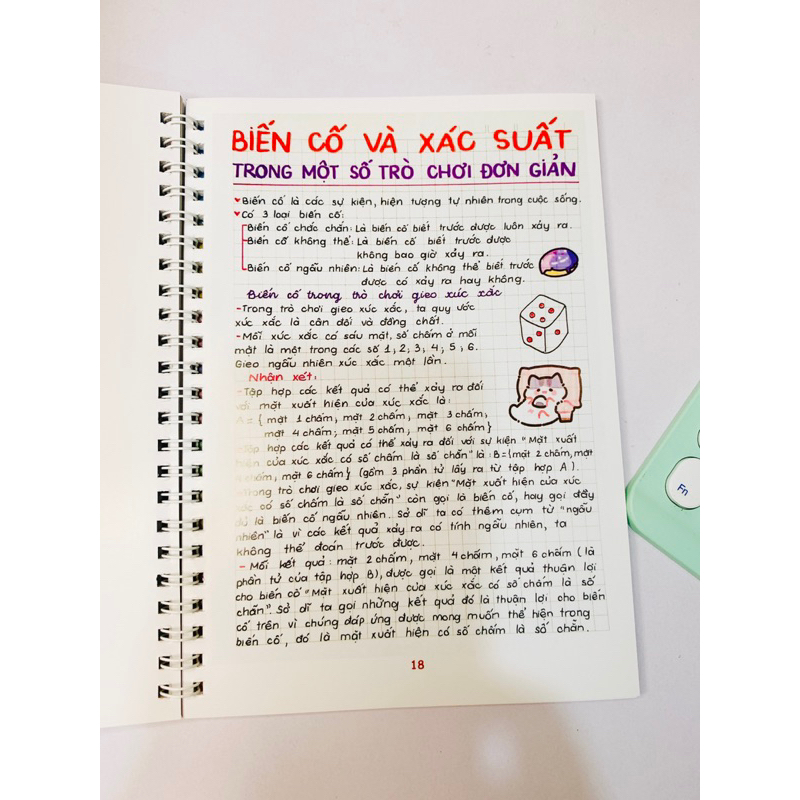 BIẾN CỐ VÀ XÁC SUẤT
TRONG MỘT SỐ TRÒ CHƠI ĐƠN GIẢN
Biến cố là các sự kiện, hiện tượng tự nhiên trong cuộc sống.
Có 3 loại biến cố:
Biến cố chắc chắn: Là biến cố biết trước được luôn xảy ra.
Biến cố không thể: Là biến cố biết trước được
không bao giờ xảy ra.
Biến cố ngẫu nhiên: Là biến cố không thể biết trước
được có xảy ra hay không.
Biến cố trong trò chơi gieo xúc xắc
- Trong trò chơi gieo xúc xắc, ta quy ước
xúc xắc là cân đối và đồng chất.
- Mỗi xúc xắc có sáu mặt, số chấm ở mỗi
mặt là một trong các số 1; 2; 3; 4; 5; 6.
Gieo ngẫu nhiên xúc xắc một lần.
Nhận xét:
- Tập hợp các kết quả có thể xảy ra đối
với mặt xuất hiện của xúc xắc là:
A = { mặt 1 chấm, mặt 2 chấm, mặt 3 chấm,
mặt 4 chấm; mặt 5 chấm, mặt 6 chấm}
- Tập hợp các kết quả có thể xảy ra đối với sự kiện "Mặt xuất
hiện của xúc xắc có số chấm là số chẵn" là: B = {mặt 2 chấm, mặt
4 chấm, mặt 6 chấm} (gồm 3 phần tử lấy ra từ tập hợp A).
- Trong trò chơi gieo xúc xắc, sự kiện "Mặt xuất hiện của xúc
xắc có số chấm là số chẵn" còn gọi là biến cố, hay gọi đầy
đủ là biến cố ngẫu nhiên. Sở dĩ ta có thêm cụm từ "ngẫu
nhiên" là vì các kết quả xảy ra có tính ngẫu nhiên, ta
không thể đoán trước được.
- Mỗi kết quả: mặt 2 chấm, mặt 4 chấm, mặt 6 chấm (là
phần tử của tập hợp B), được gọi là một kết quả thuận lợi
cho biến cố "Mặt xuất hiện của xúc xắc có số chấm là số
chẵn". Sở dĩ ta gọi những kết quả đó là thuận lợi cho biến
cố trên vì chúng đáp ứng được mong muốn thể hiện trong
biến cố, đó là mặt xuất hiện có số chấm là số chẵn.
18
Fn